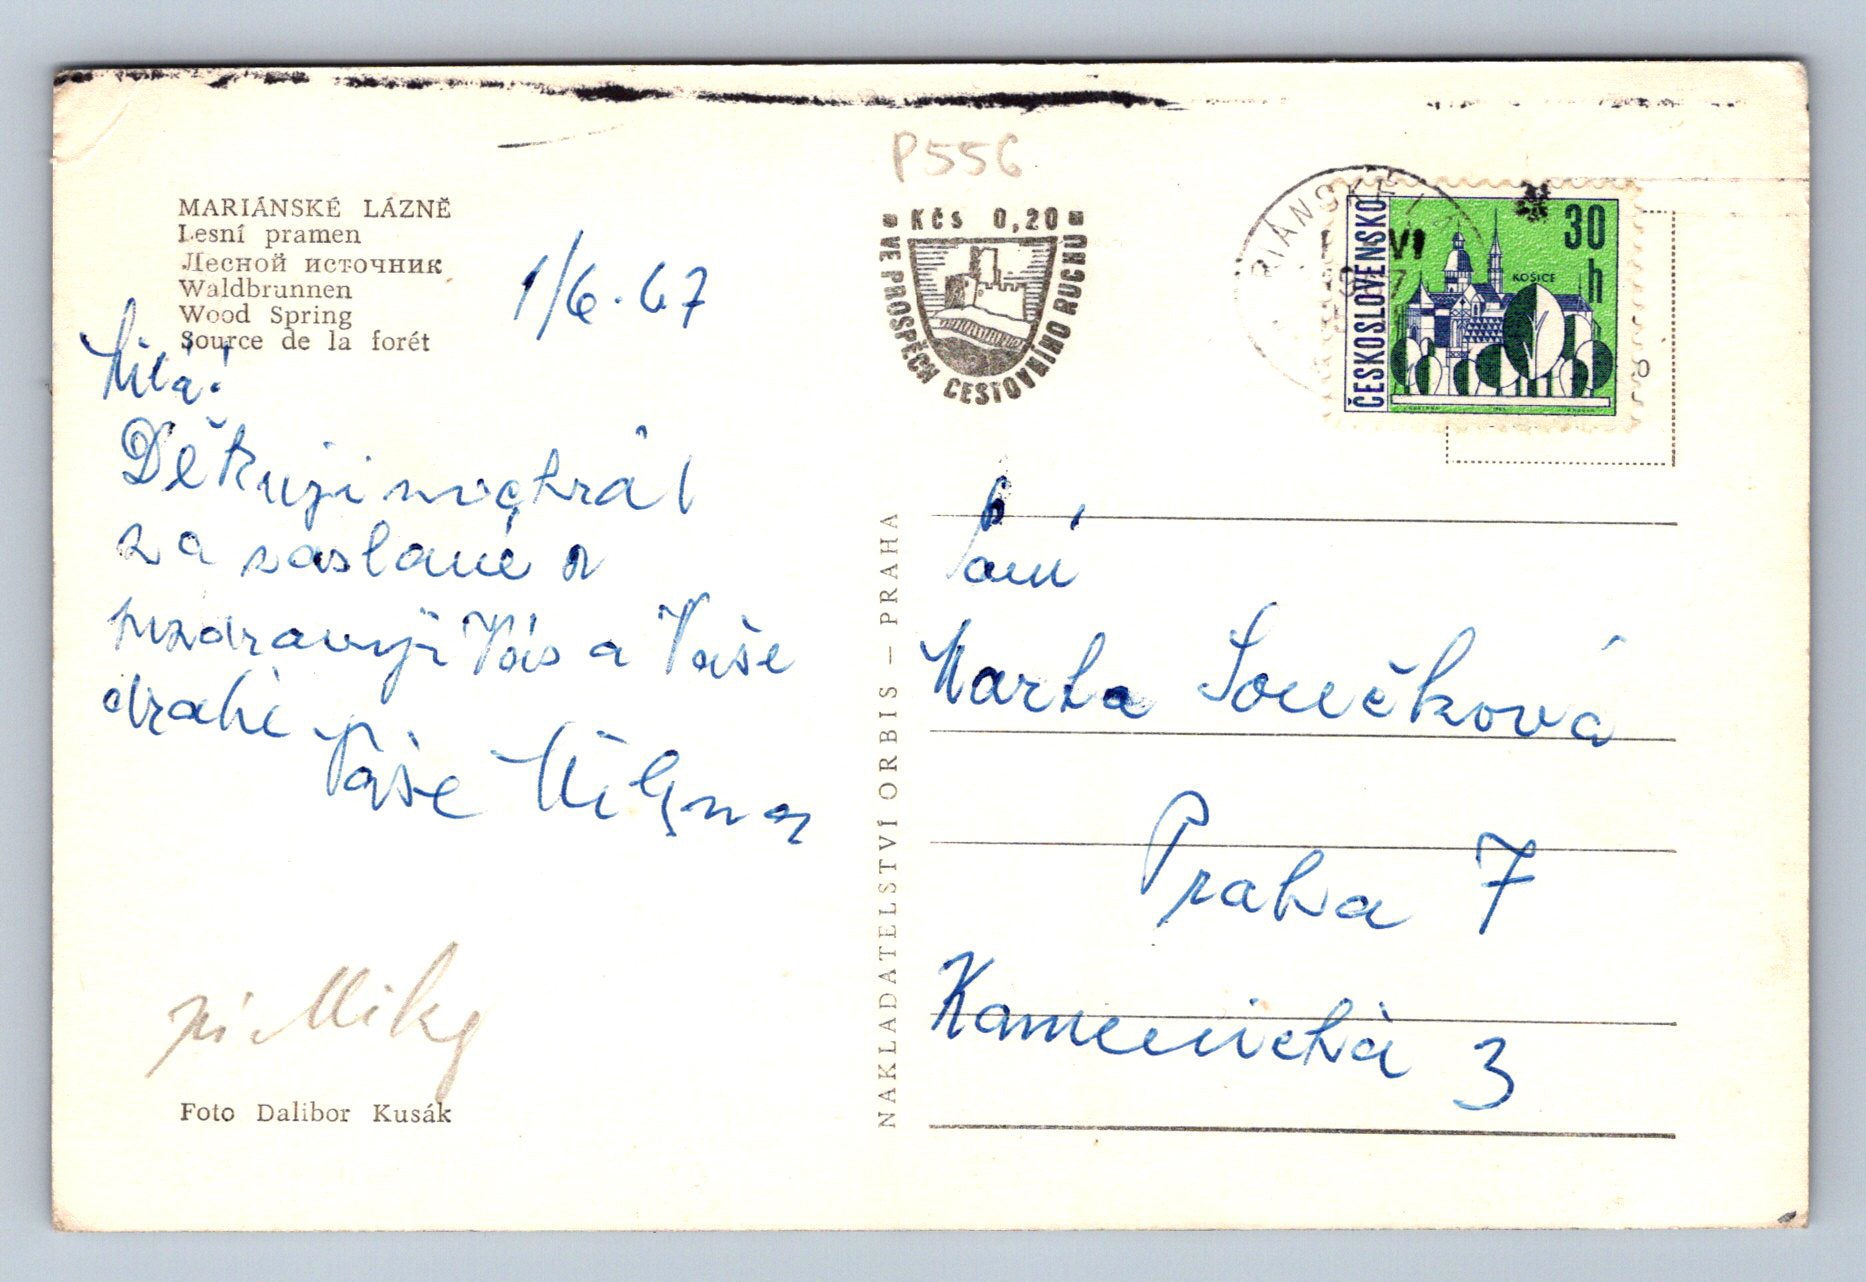 P556
MARIÁNSKÉ LÁZNĚ
Lesní pramen
Лесной источник
Waldbrunnen
Wood Spring
Source de la forét
1/6.67
Milá!
Děkuji
za zaslané a
pozdravuji Vás a Vaše
drahé
Vaše Milena
Foto Dalibor Kusák
NAKLADATELSTVÍ ORBIS – PRAHA
Kčs 0,20
VE PROSPĚCH CESTOVNÍHO RUCHU
ČESKOSLOVENSKO
30
h
KOŠICE
VI
Paní
Marta Součková
Praha 7
Kamenická 3